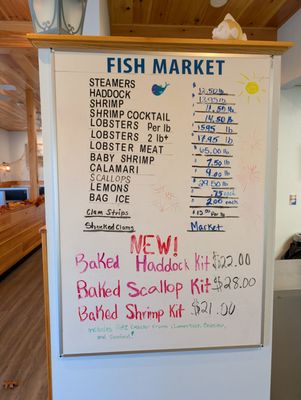 FISH MARKET
STEAMERS $ 12.50 lb
HADDOCK $ 13.95 lb
SHRIMP $ 11.50 lb
SHRIMP COCKTAIL $ 14.50 lb
LOBSTERS Per lb $ 15.95 lb
LOBSTERS 2 lb+ $ 17.95 lb
LOBSTER MEAT $ 65.00 lb
BABY SHRIMP $ 7.50 lb
CALAMARI $ 9.00 lb
SCALLOPS $ 29.50 lb
LEMONS $ .75 each
BAG ICE $ 2.00 each
Clam Strips $ 13.00 Per lb
Shucked Clams Market
NEW!
Baked Haddock Kit $22.00
Baked Scallop Kit $28.00
Baked Shrimp Kit $21.00
Includes Ritz Cracker Crumbs,
and